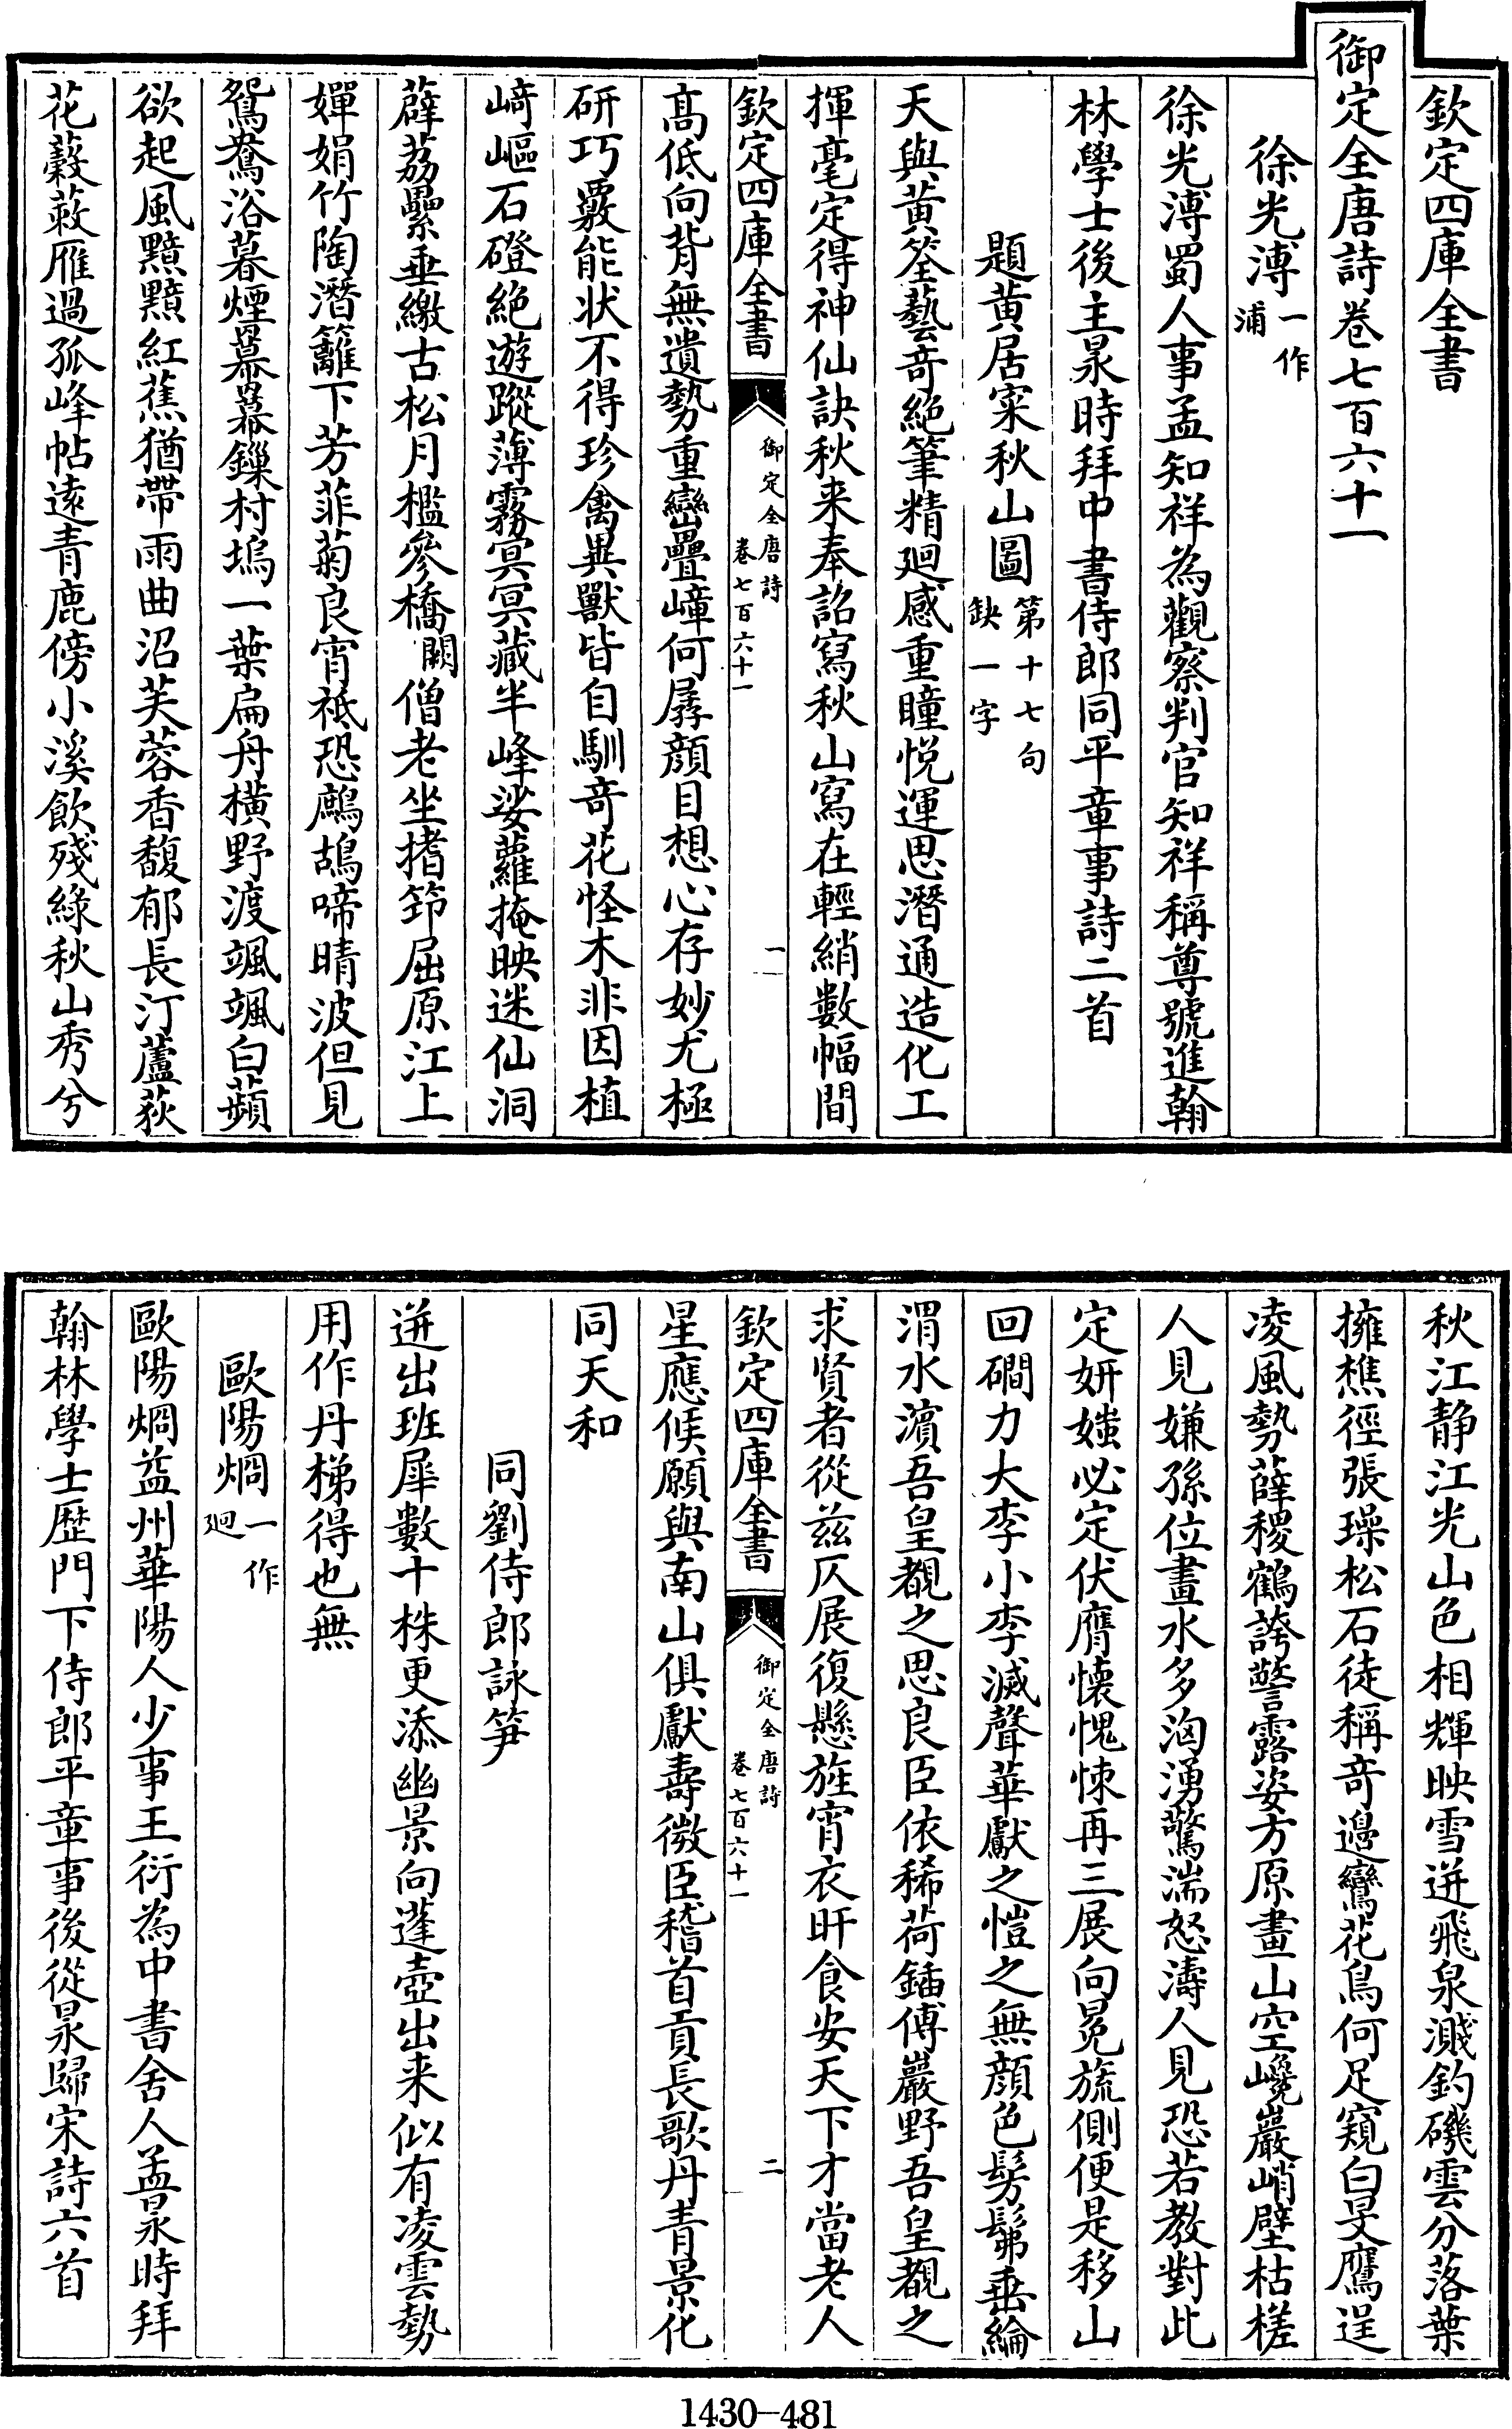 欽定四庫全書
御定全唐詩卷七百六十一
徐光溥一作浦
徐光溥蜀人事孟知祥為觀察判官知祥稱尊號進翰
林學士後主㫤時拜中書侍郎同平章事詩二首
題黄居寀秋山圖第十七句缺一字
天與黄筌藝奇絶筆精迴感重瞳悦運思潛通造化工
揮毫定得神仙訣秋来奉詔寫秋山寫在輕綃數幅間
欽定四庫全書
御定全唐詩
卷七百六十一
一
髙低向背無遺勢重巒疊嶂何孱顔目想心存妙尤極
研巧覈能状不得珍禽異獸皆自馴竒花怪木非因植
崎嶇石磴絶遊蹤薄霧冥冥藏半峰娑蘿掩映迷仙洞
薜荔纍垂繳古松月檻參橋闕僧老坐搘筇屈原江上
嬋娟竹陶潛籬下芳菲菊良宵祗恐鷓鴣啼晴波但見
鴛鴦浴暮煙羃羃鏁村塢一葉扁舟横野渡颯颯白蘋
欲起風黯黯紅蕉猶帶雨曲沼芙蓉香馥郁長汀蘆荻
花䕌蔌雁過孤峰帖逺青鹿傍小溪飲殘緑秋山秀兮
秋江静江光山色相輝映雪迸飛泉濺釣磯雲分落葉
擁樵徑張璪松石徒稱竒邊鸞花鳥何足窺白旻鷹逞
凌風勢薛稷鶴誇警露姿方原畫山空巉巖峭壁枯槎
人見嫌孫位畫水多洶湧驚湍怒濤人見恐若教對此
定妍媸必定伏膺懐愧悚再三展向冕旒側便是移山
回磵力大李小李滅聲華獻之愷之無顔色髣髴垂綸
渭水濱吾皇覩之思良臣依稀荷鍤傅巖野吾皇覩之
求賢者從兹仄展復懸旌宵衣旰食安天下才當老人
欽定四庫全書
御定全唐詩
卷七百六十一
二
星應候願與南山俱獻壽微臣稽首貢長歌丹青景化
同天和
同劉侍郎詠筍
迸出班犀數十株更添幽景向蓬壺出来似有凌雲勢
用作丹梯得也無
歐陽烱一作廻
歐陽烱益州華陽人少事王衍為中書舍人孟㫤時拜
翰林學士歴門下侍郎平章事後從㫤歸宋詩六首
1430-481